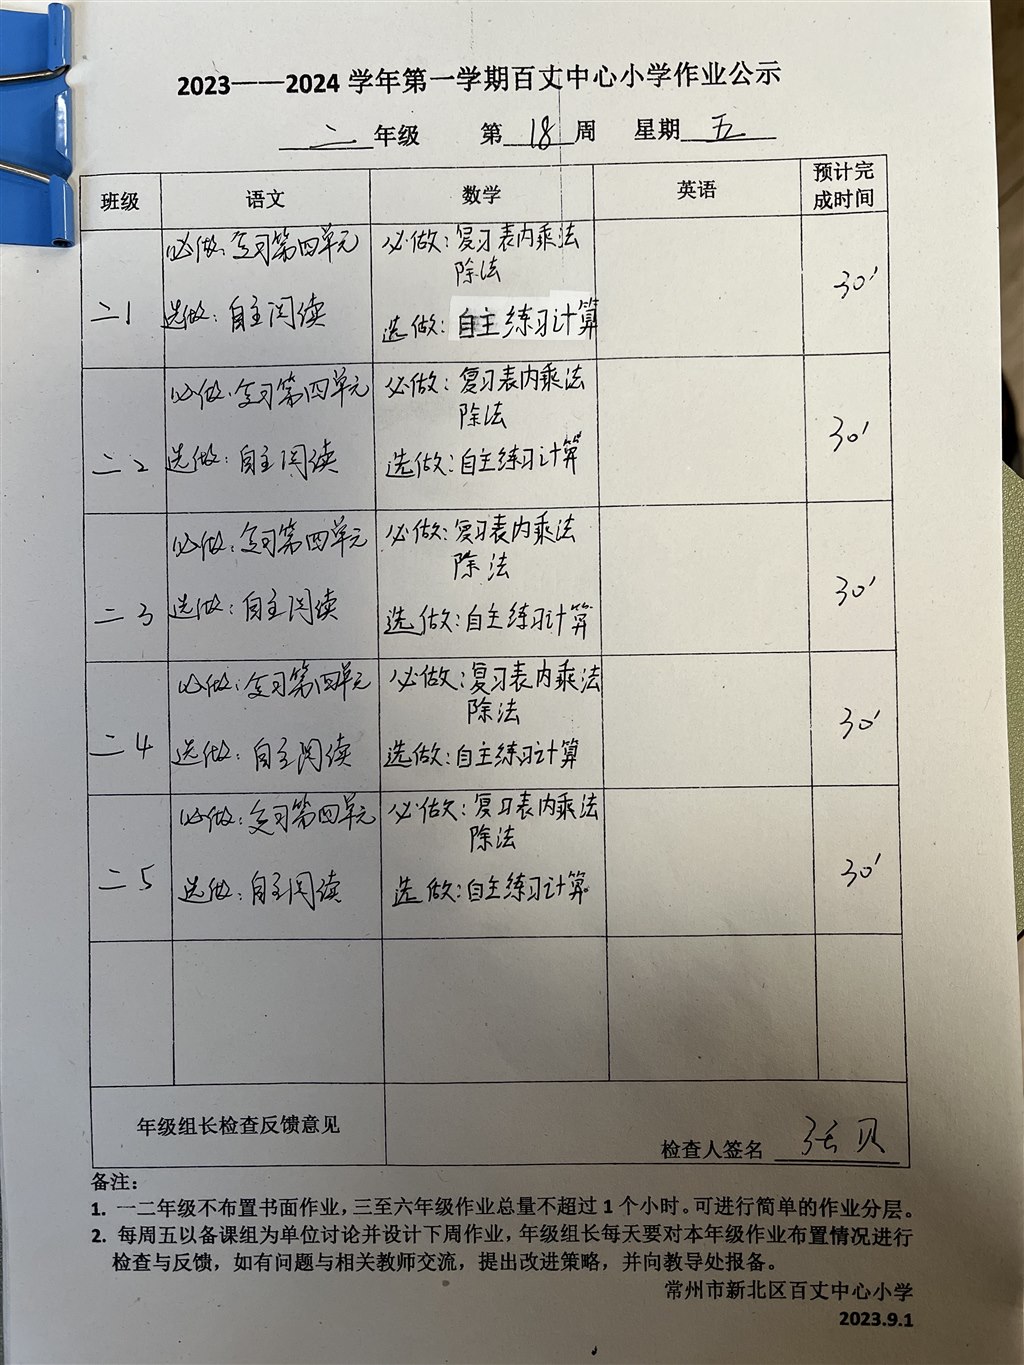 2023——2024 学年第一学期百丈中心小学作业公示
二 年级 第 18 周 星期 五
班级 语文 数学 英语 预计完成时间
二1 必做:复习第四单元 必做:复习表内乘法 30'
除法
选做:自主阅读 选做:自主练习计算
二2 必做:复习第四单元 必做:复习表内乘法 30'
除法
选做:自主阅读 选做:自主练习计算
二3 必做:复习第四单元 必做:复习表内乘法 30'
除法
选做:自主阅读 选做:自主练习计算
二4 必做:复习第四单元 必做:复习表内乘法 30'
除法
选做:自主阅读 选做:自主练习计算
二5 必做:复习第四单元 必做:复习表内乘法 30'
除法
选做:自主阅读 选做:自主练习计算
年级组长检查反馈意见
检查人签名 张贝
备注:
1. 一二年级不布置书面作业，三至六年级作业总量不超过 1 个小时。可进行简单的作业分层。
2. 每周五以备课组为单位讨论并设计下周作业，年级组长每天要对本年级作业布置情况进行
检查与反馈，如有问题与相关教师交流，提出改进策略，并向教导处报备。
常州市新北区百丈中心小学
2023.9.1